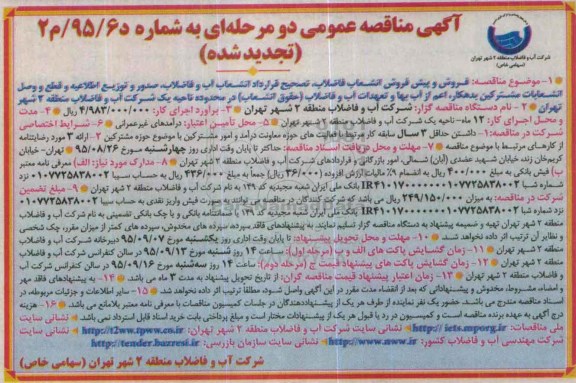 آگهی مناقصه عمومی دو مرحله‌ای به شماره د۹۵/۶/م۲
(تجدید شده)
شرکت آب و فاضلاب منطقه ۲ شهر تهران
(سهامی خاص)
۱- موضوع مناقصه: فروش و پیش فروش انشعاب فاضلاب، تصحیح قرارداد انشعاب آب و فاضلاب، صدور و توزیع اطلاعیه و قطع و وصل
انشعابات مشترکین بدهکار، اعم از آب بها و تعهدات آب و فاضلاب (حقوق انشعاب) در محدوده ناحیه یک شرکت آب و فاضلاب منطقه ۲ شهر
تهران ۲- نام دستگاه مناقصه گزار: شرکت آب و فاضلاب منطقه ۲ شهر تهران ۳- برآورد اجرای کار: ۴/۹۸۳/۰۰۰/۰۰۰ ریال ۴- مدت
و محل اجرای کار: ۱۲ ماه- ناحیه یک شرکت آب و فاضلاب منطقه ۲ شهر تهران ۵- محل تأمین اعتبار: درآمدهای غیرعمرانی ۶- شرایط اختصاصی
شرکت در مناقصه: ۱- داشتن حداقل ۳ سال سابقه کار مرتبط با فعالیت های حوزه معاونت درآمد و امور مشترکین با موضوع حوزه مشترکین ۲- ارائه ۳ مورد رضایتنامه
از کارهای مرتبط با موضوع مناقصه ۷- مهلت و محل دریافت اسناد مناقصه: حداکثر تا پایان وقت اداری روز چهارشنبه مورخ ۹۵/۰۸/۲۶ تهران- خیابان
کریم‌خان زند، خیابان شهید عضدی (آبان) شمالی، امور بازرگانی و قراردادهای شرکت آب و فاضلاب منطقه ۲ شهر تهران ۸- مدارک مورد نیاز: الف) معرفی نامه معتبر
ب) فیش بانکی به مبلغ ۴۰۰/۰۰۰ ریال به انضمام ۹٪ مالیات ارزش افزوده (۳۶/۰۰۰ ریال) جمعاً به مبلغ ۴۳۶/۰۰۰ ریال به حساب سیبا ۰۱۰۷۷۲۵۸۳۸۰۰۲ نزد
بانک ملی ایران شعبه مجیدیه کد ۱۳۹ به نام شرکت آب و فاضلاب منطقه ۲ شهر تهران ۹- مبلغ تضمین
شرکت در مناقصه: به میزان ۲۴۹/۱۵۰/۰۰۰ ریال می باشد که شرکت کنندگان در مناقصه می توانند به صورت فیش واریز نقدی به حساب سیبا ۰۱۰۷۷۲۵۸۳۸۰۰۲
بانک ملی ایران شعبه مجیدیه کد ۱۳۹، ضمانتنامه بانکی و یا چک بانکی تضمینی به نام شرکت آب و فاضلاب
منطقه ۲ شهر تهران تهیه و ضمیمه پیشنهاد به دستگاه مناقصه گزار تسلیم نمایند. به پیشنهادهای فاقد سپرده، سپرده های مخدوش، سپرده های کمتر از میزان مقرر، چک شخصی
و نظایر آن ترتیب اثر داده نخواهد شد ۱۰- مهلت و محل تحویل پیشنهاد: تا پایان وقت اداری روز یکشنبه مورخ ۹۵/۰۹/۰۷ دبیرخانه شرکت آب و فاضلاب
منطقه ۲ شهر تهران ۱۱- زمان گشایش پاکت های الف و ب (مرحله اول): ساعت ۱۴ روز شنبه مورخ ۹۵/۰۹/۱۳ در سالن کنفرانس شرکت آب و فاضلاب
منطقه ۲ شهر تهران ۱۲- زمان گشایش پاکت های پیشنهاد قیمت ج (مرحله دوم): ساعت ۱۴ روز سه‌شنبه مورخ ۹۵/۰۹/۱۶ در سالن کنفرانس شرکت آب
و فاضلاب منطقه ۲ شهر تهران ۱۳- زمان اعتبار پیشنهاد قیمت مناقصه گران: از تاریخ تحویل پیشنهاد به مدت ۳ ماه می باشد. ۱۴- به پیشنهادهای فاقد مهر
و امضاء، مشروط، مخدوش و پیشنهاداتی که بعد از انقضاء مدت مقرر در این آگهی واصل شود، مطلقاً ترتیب اثر داده نخواهد شد ۱۵- سایر اطلاعات و جزئیات مربوطه، در
اسناد مناقصه مندرج می باشد. حضور یک نفر نماینده از طرف هر یک از پیشنهاددهندگان در جلسات کمیسیون مناقصات با معرفی نامه معتبر بلامانع می باشد. ۱۶- هزینه
درج آگهی به عهده برنده مناقصه است و کمیسیون در رد یا قبول هر یک از پیشنهادات مختار است و مبلغ پرداختی بابت خرید اسناد قابل استرداد نمی باشد
ملی مناقصات: http://iets.mporg.ir نشانی سایت شرکت آب و فاضلاب منطقه ۲ شهر تهران: http://t2ww.tpww.co.ir نشانی سایت
شرکت مهندسی آب و فاضلاب کشور: http://www.nww.ir نشانی سایت سازمان بازرسی: http://tender.bazresi.ir
شرکت آب و فاضلاب منطقه ۲ شهر تهران (سهامی خاص)